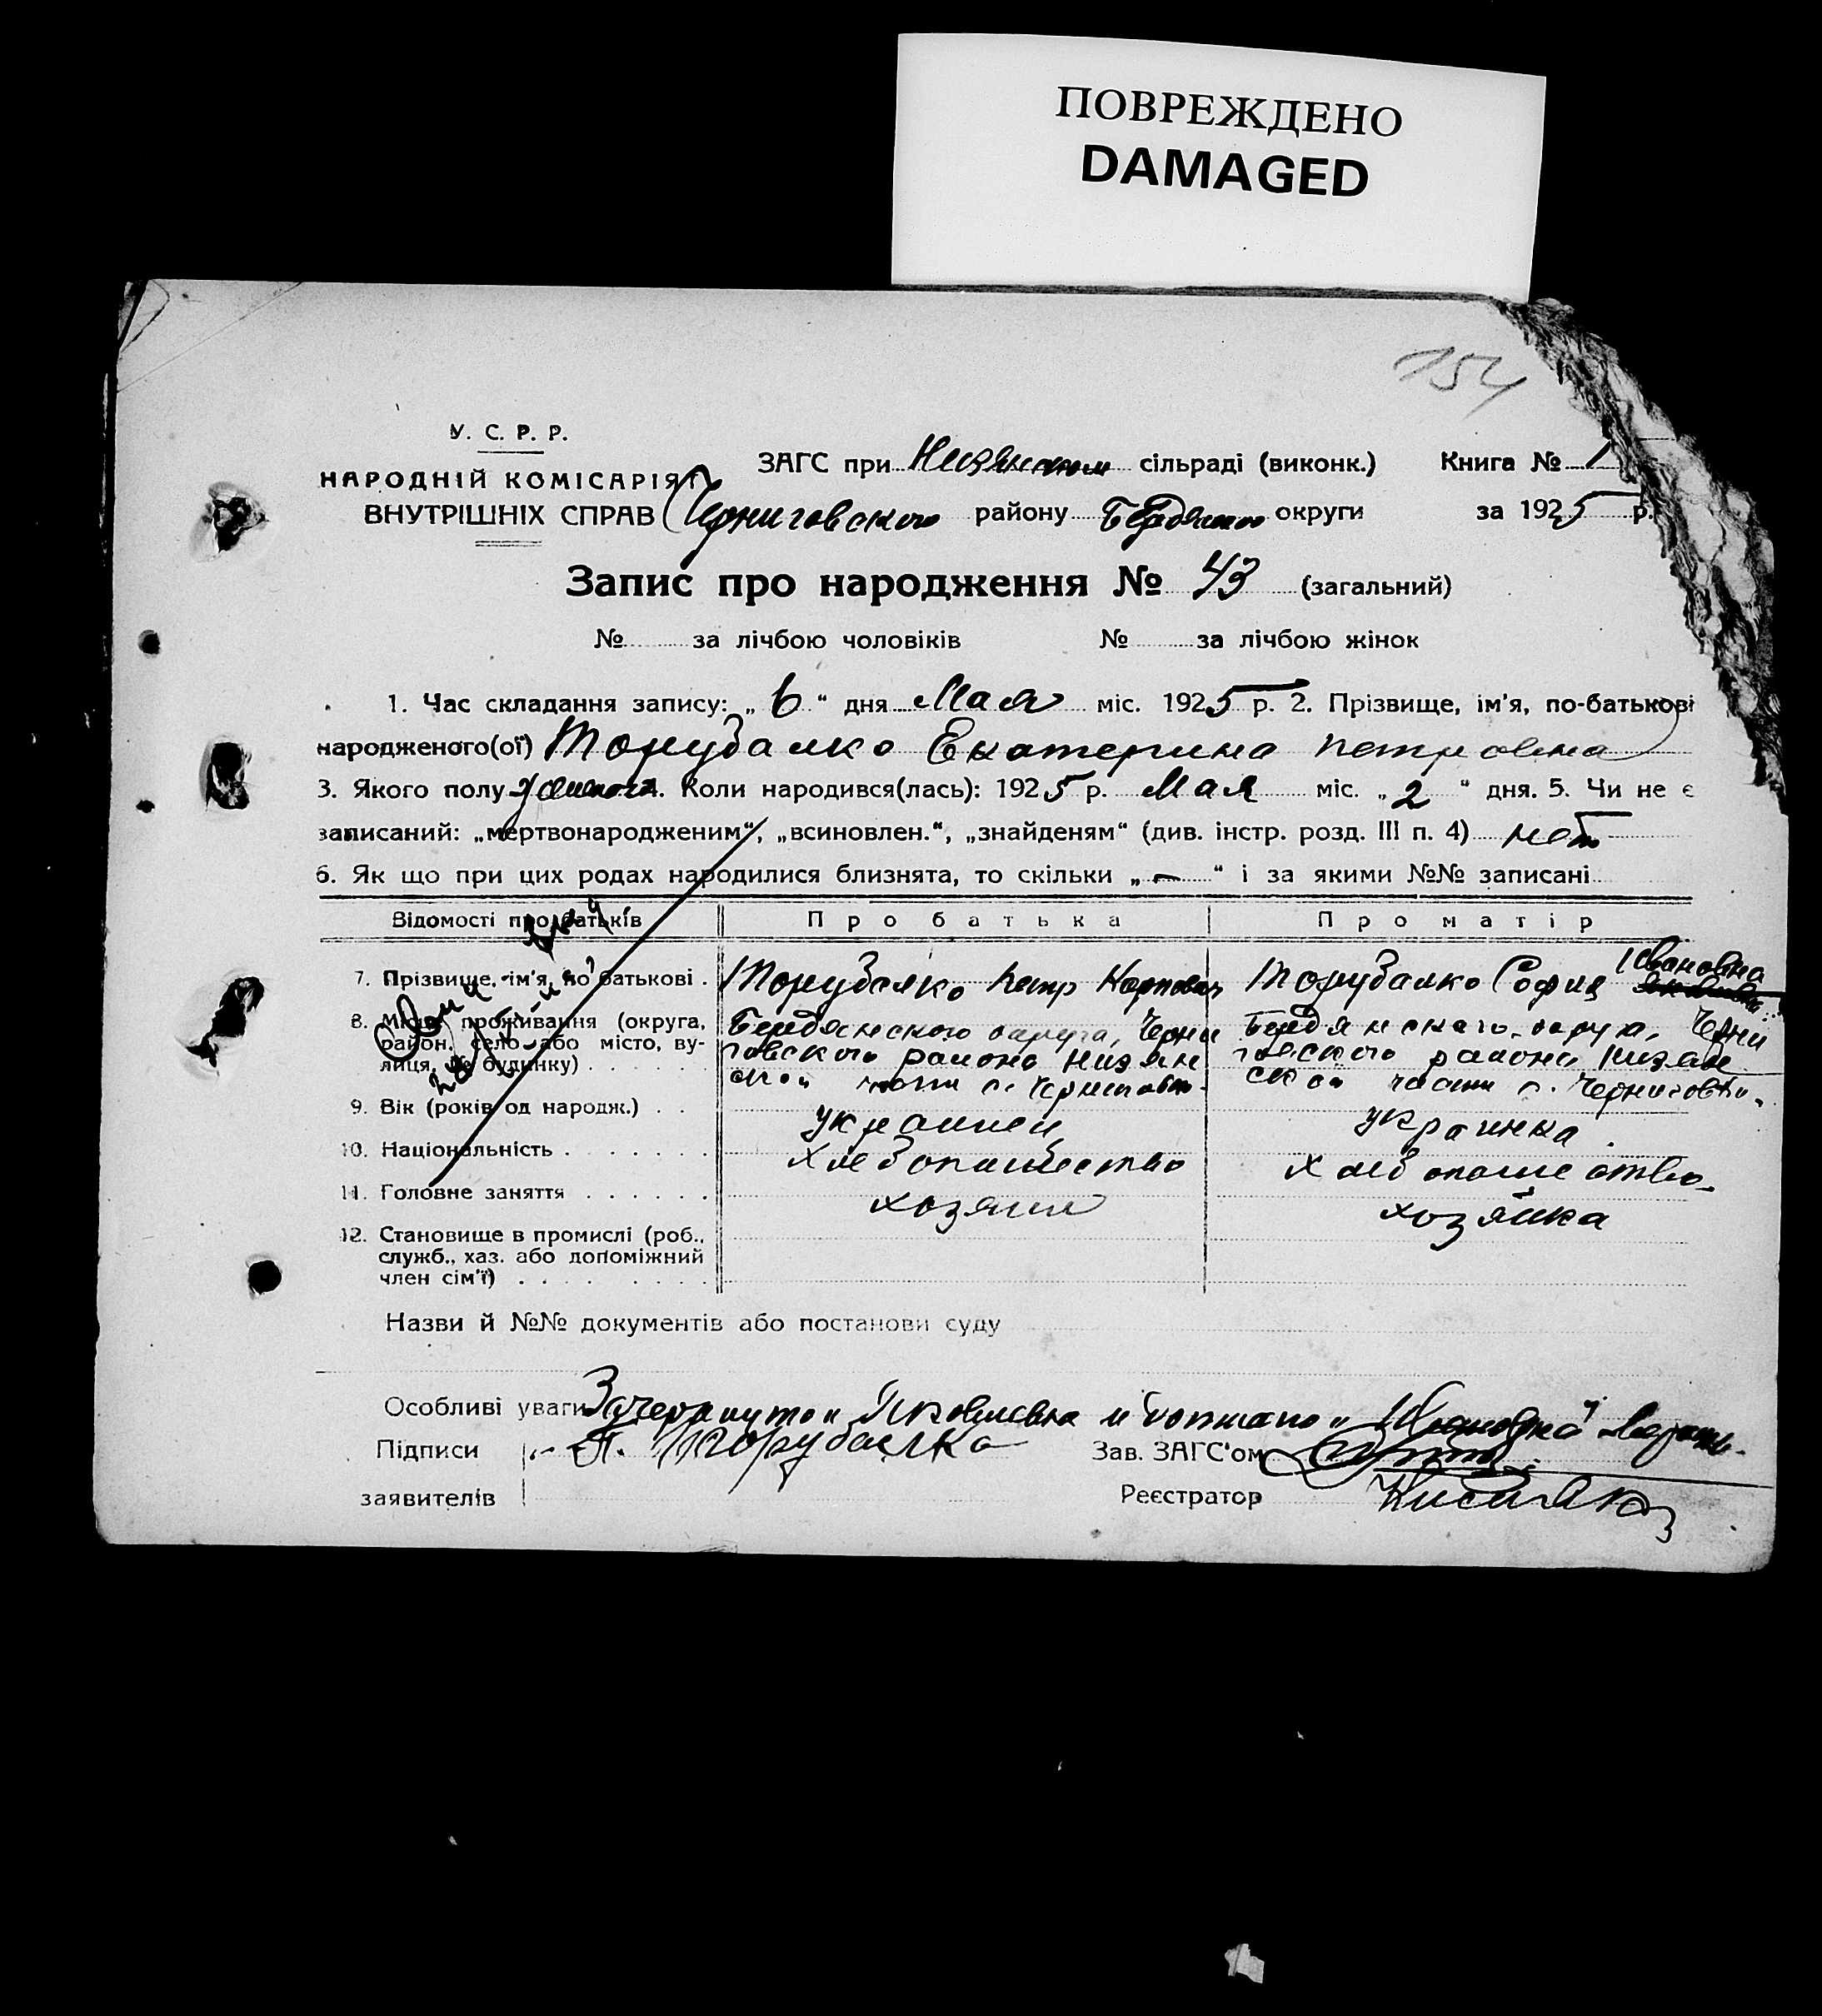 ПОВРЕЖДЕНО
DAMAGED
154
У. С. Р. Р.
НАРОДНІЙ КОМІСАРІЯТ
ВНУТРІШНІХ СПРАВ
ЗАГС при Низянском сільраді (виконк.) Книга № 1
Черниговского району Бердянско округи за 1925 р.
Запис про народження № 43 (загальний)
№ за лічбою чоловіків № за лічбою жінок
1. Час складання запису: „ 6 “ дня Мая міс. 1925 р. 2. Прізвище, ім'я, по-батькові
народженого(ої) Торубалко Екатерина Петровна
3. Якого полу 4. Коли народився(лась): 1925 р. Мая міс. „ 2 “ дня. 5. Чи не є
записаний: „мертвонародженим“, „всиновлен.“, „знайденям“ (див. інстр. розд. III п. 4) нет
6. Як що при цих родах народилися близнята, то скільки „ — “ і за якими №№ записані
Відомості про батьків Про батька Про матір
7. Прізвище, ім'я, по батькові . Торубалко Петр Карпович Торубалко София Ивановна
8. Місце проживання (округа, район, село або місто, вулиця, № будинку) . . . . .
Бердянского округа, Черни
говского района Низян
ской части с. Черниговки.
Бердянского округа, Черни
говского района Низян
ской части с. Черниговки.
9. Вік (років од народж.) . .
украинец украинка.
10. Національність . . . . . . .
хлебопашество хлебопашество.
11. Головне заняття . . . . . .
хозяин хозяйка
12. Становище в промислі (роб.,
служб., хаз. або допоміжний
член сім'ї) . . . . . . . .
Назви й №№ документів або постанови суду
Особливі уваги Зачеркнуто „Яковлевна и дописано „Ивановна“ верить.
Підписи П. Торубалко Зав. ЗАГС'ом
заявителів Реєстратор